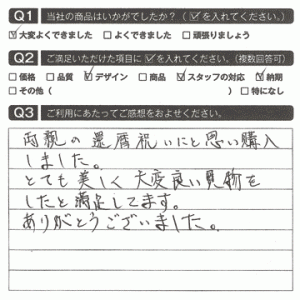 Q1 当社の商品はいかがでしたか？（☑を入れてください。）
☑大変よくできました □よくできました □頑張りましょう
Q2 ご満足いただけた項目に☑を入れてください。（複数回答可）
□価格 □品質 ☑デザイン □商品 ☑スタッフの対応 ☑納期
□その他（ ） □特になし
Q3 ご利用にあたってご感想をおよせください。
両親の還暦祝いにと思い購入
しました。
とても美しく大変良い見物を
したと満足してます。
ありがとうございました。